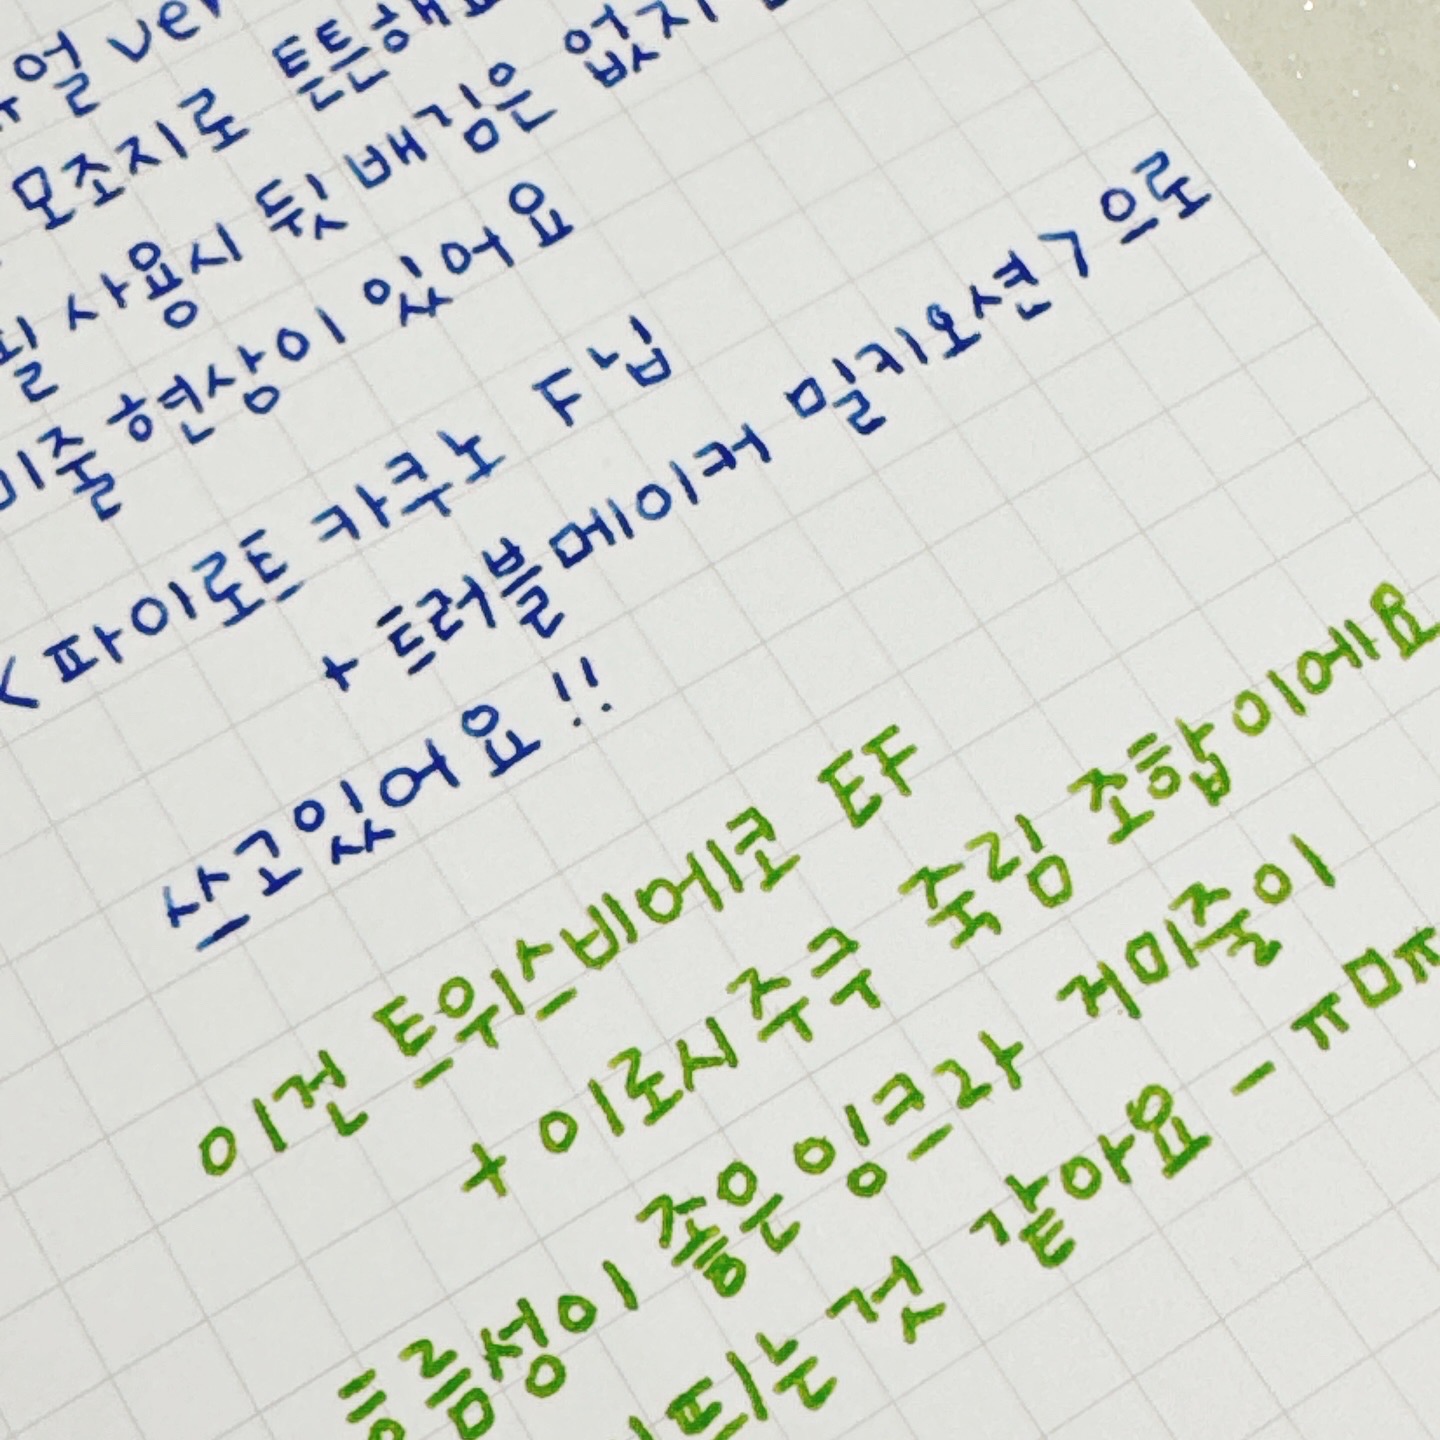 모조지로 튼튼해요
사용시 뒷 배김은 없지
미줄 현상이 있어요
<파이로트 카쿠노 F닙
+ 트러블메이커 밀키오션>으로
쓰고있어요!!
이건 트위스비에코 EF
+ 이로시주쿠 죽림 조합이에요
흐름성이 좋은 잉크라 거미줄이
띄는 것 같아요 - ㅠㅁㅠ